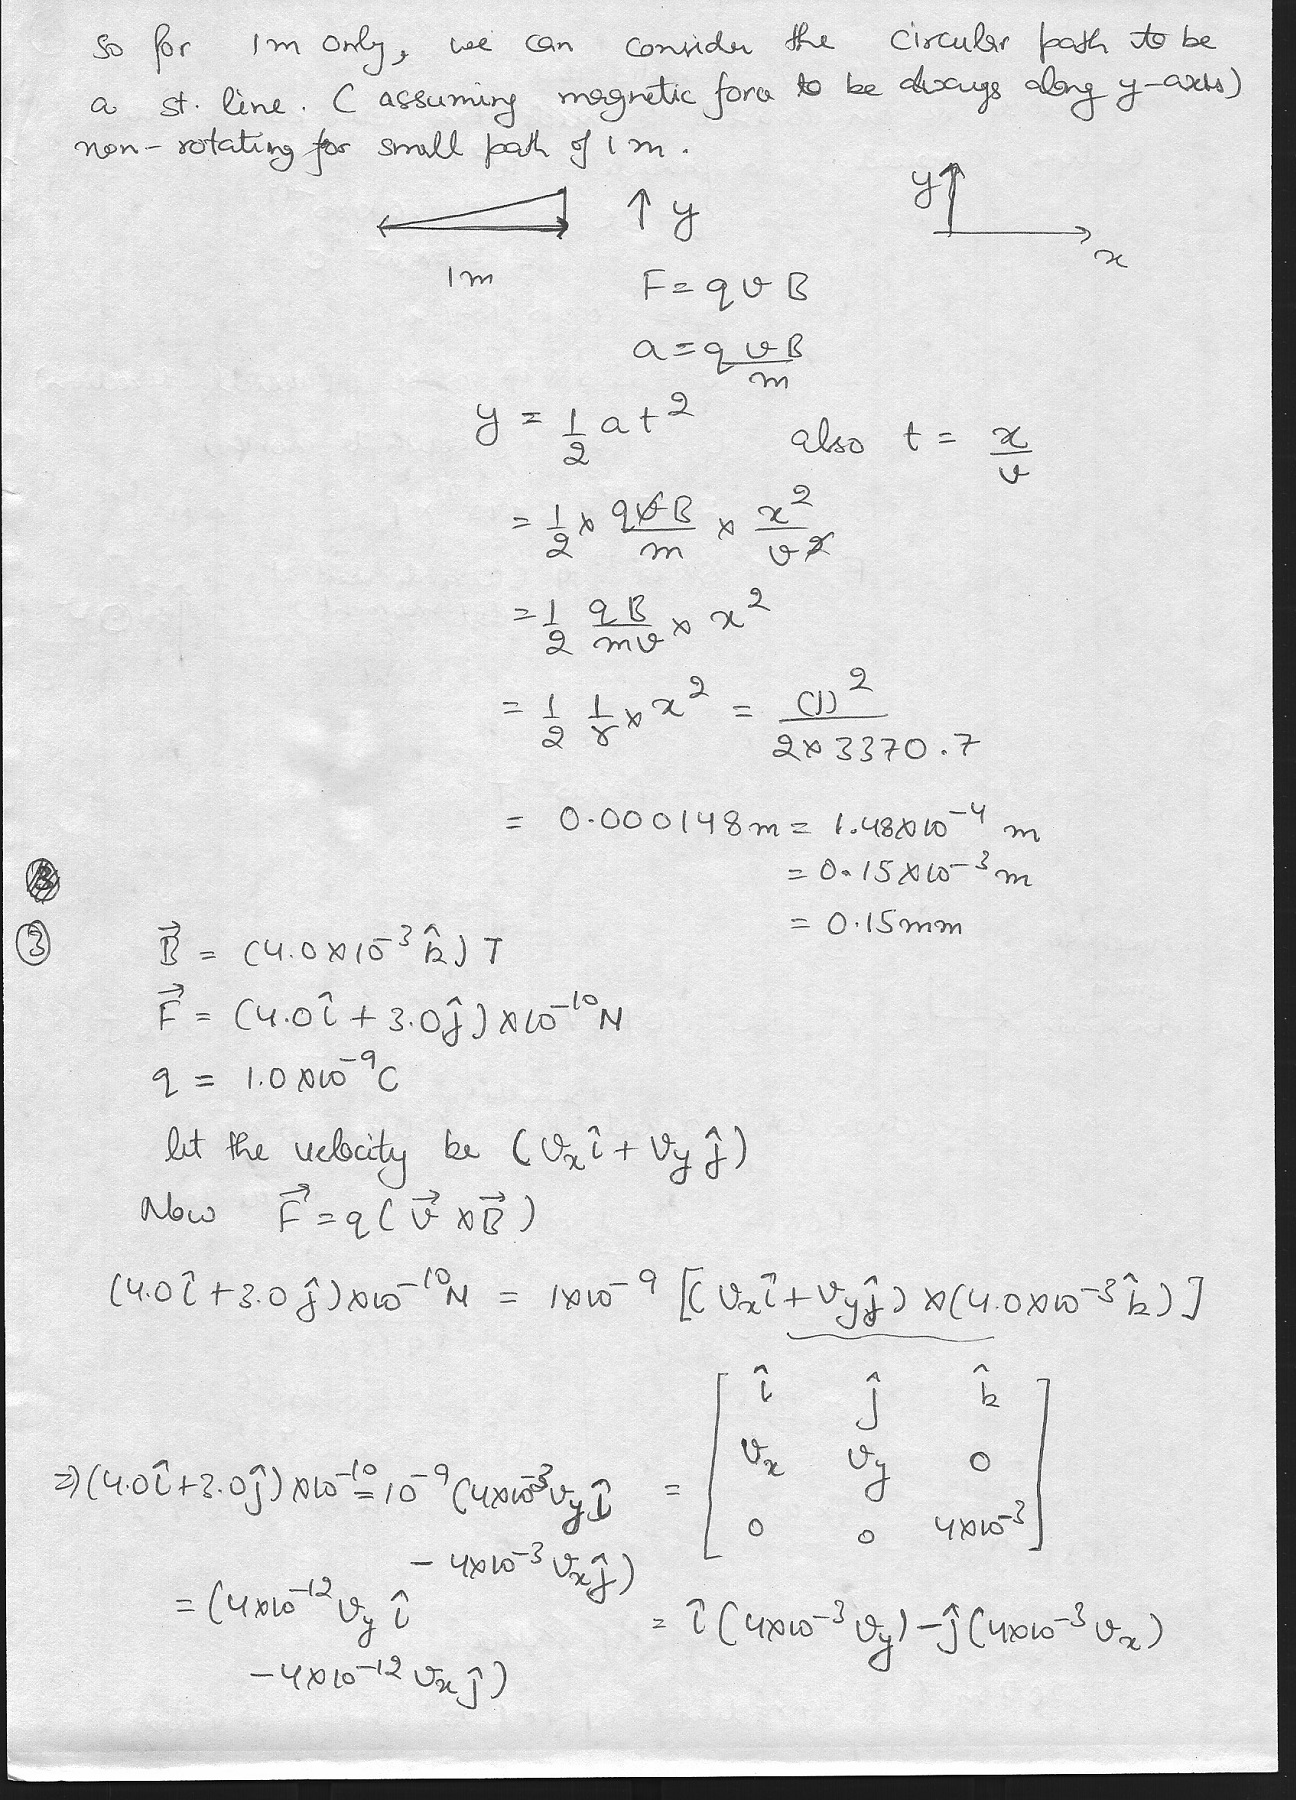 So for 1m only, we can consider the circular path to be
a st. line. (assuming magnetic force to be always along y-axis)
non-rotating for small path of 1m.
↑ y
y
x
1m
F = qvB
a = qvB/m
y = 1/2 at² also t = x/v
= 1/2 × qvB/m × x²/v²
= 1/2 qB/mv × x²
= 1/2 1/r × x² = (1)²/2×3370.7
= 0.000148m = 1.48×10⁻⁴ m
= 0.15×10⁻³ m
= 0.15mm
③ B⃗ = (4.0×10⁻³ k̂) T
F⃗ = (4.0î + 3.0ĵ) ×10⁻¹⁰ N
q = 1.0×10⁻⁹ C
let the velocity be (vₓî + v_yĵ)
Now F⃗ = q(v⃗ × B⃗)
(4.0î + 3.0ĵ)×10⁻¹⁰ N = 1×10⁻⁹ [(vₓî + v_yĵ) × (4.0×10⁻³ k̂)]
î ĵ k̂
vₓ v_y 0
⇒ (4.0î + 3.0ĵ)×10⁻¹⁰ = 10⁻⁹ (4×10⁻³ v_y î =
0 0 4×10⁻³
- 4×10⁻³ vₓĵ)
= (4×10⁻¹² v_y î = î(4×10⁻³ v_y) - ĵ(4×10⁻³ vₓ)
- 4×10⁻¹² vₓĵ)